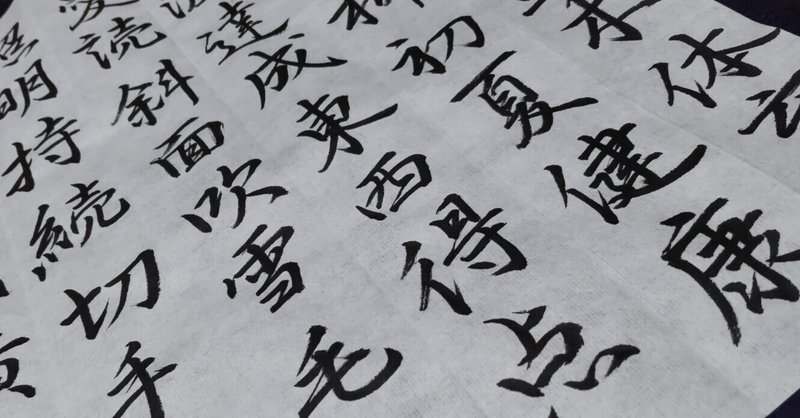 休
初夏健康
達成東西得点
読斜面吹雪毛
明持続切手